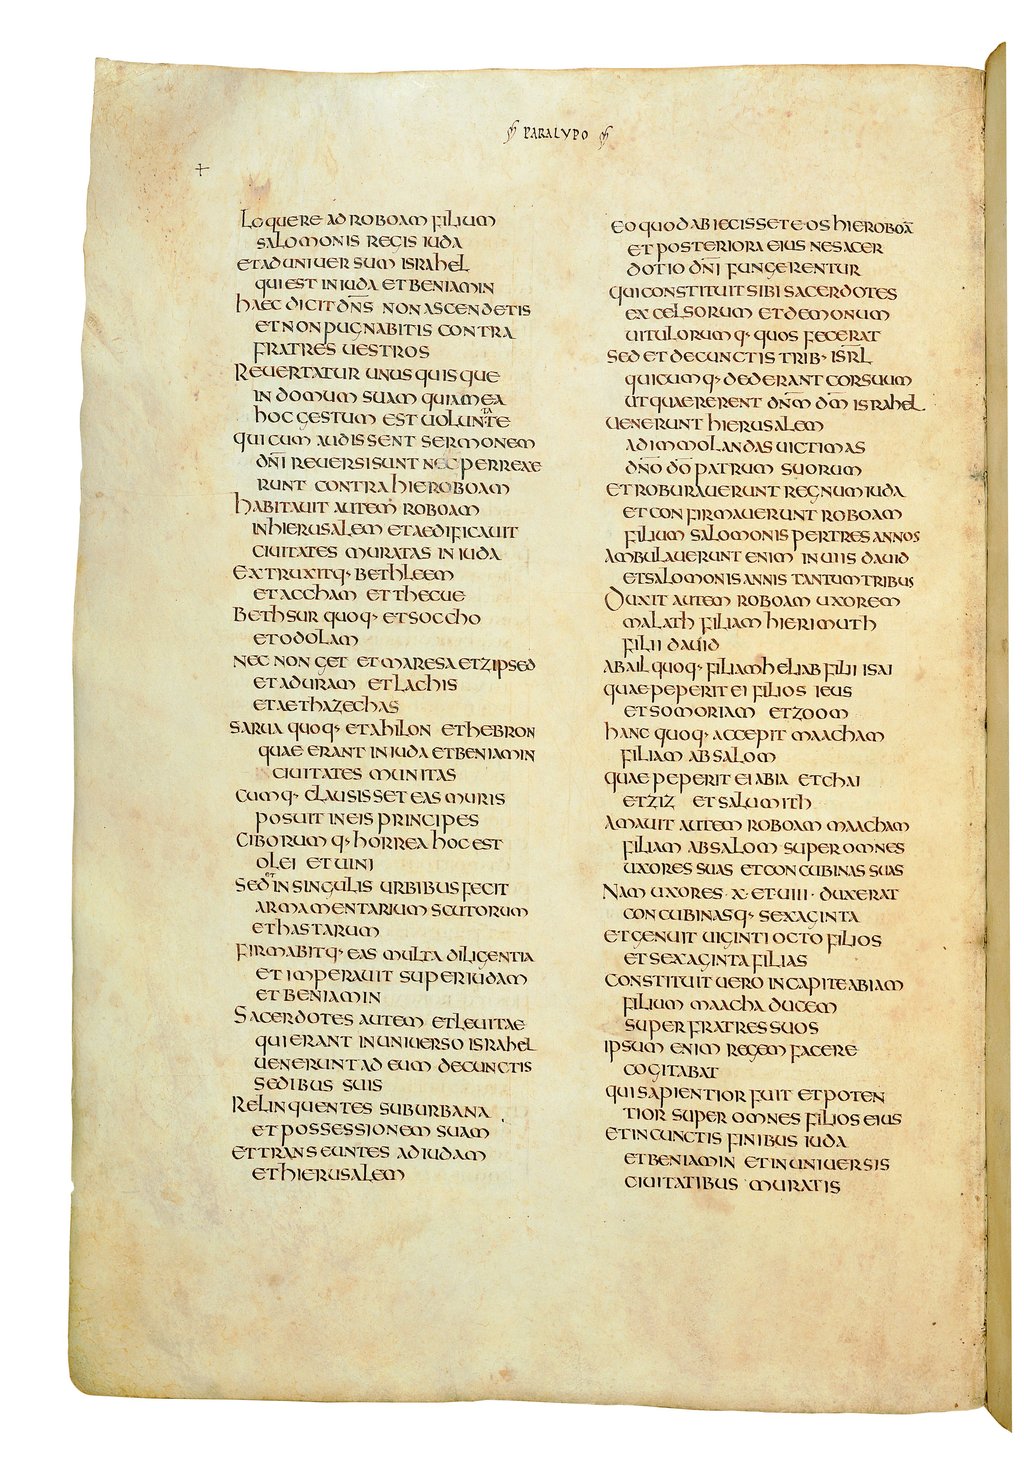 PARALYPO
LOQUERE AD ROBOAM FILIUM
SALOMONIS REGIS IUDA
ET AD UNIUERSUM ISRAHEL
QUI EST IN IUDA ET BENIAMIN
HAEC DICIT DN̅S NON ASCENDETIS
ET NON PUGNABITIS CONTRA
FRATRES UESTROS
REUERTATUR UNUSQUISQUE
IN DOMUM SUAM QUIA MEA
HOC GESTUM EST UOLUNTATE
QUI CUM AUDISSENT SERMONEM
DN̅I REUERSI SUNT NEC PERREXE
RUNT CONTRA HIEROBOAM
HABITAUIT AUTEM ROBOAM
IN HIERUSALEM ET AEDIFICAUIT
CIUITATES MURATAS IN IUDA
EXTRUXITQ· BETHLEEM
ET ACCHAM ET THECUE
BETHSUR QUOQ· ET SOCCHO
ET ODOLAM
NEC NON GET ET MARESA ET ZIPSED
ET ADURAM ET LACHIS
ET AETHAZECHAS
SARUA QUOQ· ET AHILON ET HEBRON
QUAE ERANT IN IUDA ET BENIAMIN
CIUITATES MUNITAS
CUMQ· CLAUSISSET EAS MURIS
POSUIT IN EIS PRINCIPES
CIBORUMQ· HORREA HOC EST
OLEI ET UINI
SED ET IN SINGULIS URBIBUS FECIT
ARMAMENTARIUM SCUTORUM
ET HASTARUM
FIRMABITQ· EAS MULTA DILIGENTIA
ET IMPERAUIT SUPER IUDAM
ET BENIAMIN
SACERDOTES AUTEM ET LEUITAE
QUI ERANT IN UNIUERSO ISRAHEL
UENERUNT AD EUM DE CUNCTIS
SEDIBUS SUIS
RELINQUENTES SUBURBANA
ET POSSESSIONEM SUAM
ET TRANSEUNTES AD IUDAM
ET HIERUSALEM
EO QUOD ABIECISSET EOS HIEROBOA̅
ET POSTERIORA EIUS NE SACER
DOTIO DN̅I FUNGERENTUR
QUI CONSTITUIT SIBI SACERDOTES
EXCELSORUM ET DEMONUM
UITULORUMQ· QUOS FECERAT
SED ET DE CUNCTIS TRIB· ISR̅L
QUICUMQ· DEDERANT COR SUUM
UT QUAERERENT DN̅M D̅M ISRAHEL
UENERUNT HIERUSALEM
AD IMMOLANDAS UICTIMAS
DN̅O D̅O PATRUM SUORUM
ET ROBURAUERUNT REGNUM IUDA
ET CONFIRMAUERUNT ROBOAM
FILIUM SALOMONIS PER TRES ANNOS
AMBULAUERUNT ENIM IN UIIS DAUID
ET SALOMONIS ANNIS TANTUM TRIBUS
DUXIT AUTEM ROBOAM UXOREM
MALATH FILIAM HIERIMUTH
FILII DAUID
ABAIL QUOQ· FILIAM HELIAB FILII ISAI
QUAE PEPERIT EI FILIOS IEUS
ET SOMORIAM ET ZOOM
HANC QUOQ· ACCEPIT MAACHAM
FILIAM ABSALOM
QUAE PEPERIT EI ABIA ET CHAI
ET ZIZ ET SALUMITH
AMAUIT AUTEM ROBOAM MAACHAM
FILIAM ABSALOM SUPER OMNES
UXORES SUAS ET CONCUBINAS SUAS
NAM UXORES ·X· ET·UIII· DUXERAT
CONCUBINASQ· SEXAGINTA
ET GENUIT UIGINTI OCTO FILIOS
ET SEXAGINTA FILIAS
CONSTITUIT UERO IN CAPITE ABIAM
FILIUM MAACHA DUCEM
SUPER FRATRES SUOS
IPSUM ENIM REGEM FACERE
COGITABAT
QUI SAPIENTIOR FUIT ET POTEN
TIOR SUPER OMNES FILIOS EIUS
ET IN CUNCTIS FINIBUS IUDA
ET BENIAMIN ET IN UNIUERSIS
CIUITATIBUS MURATIS